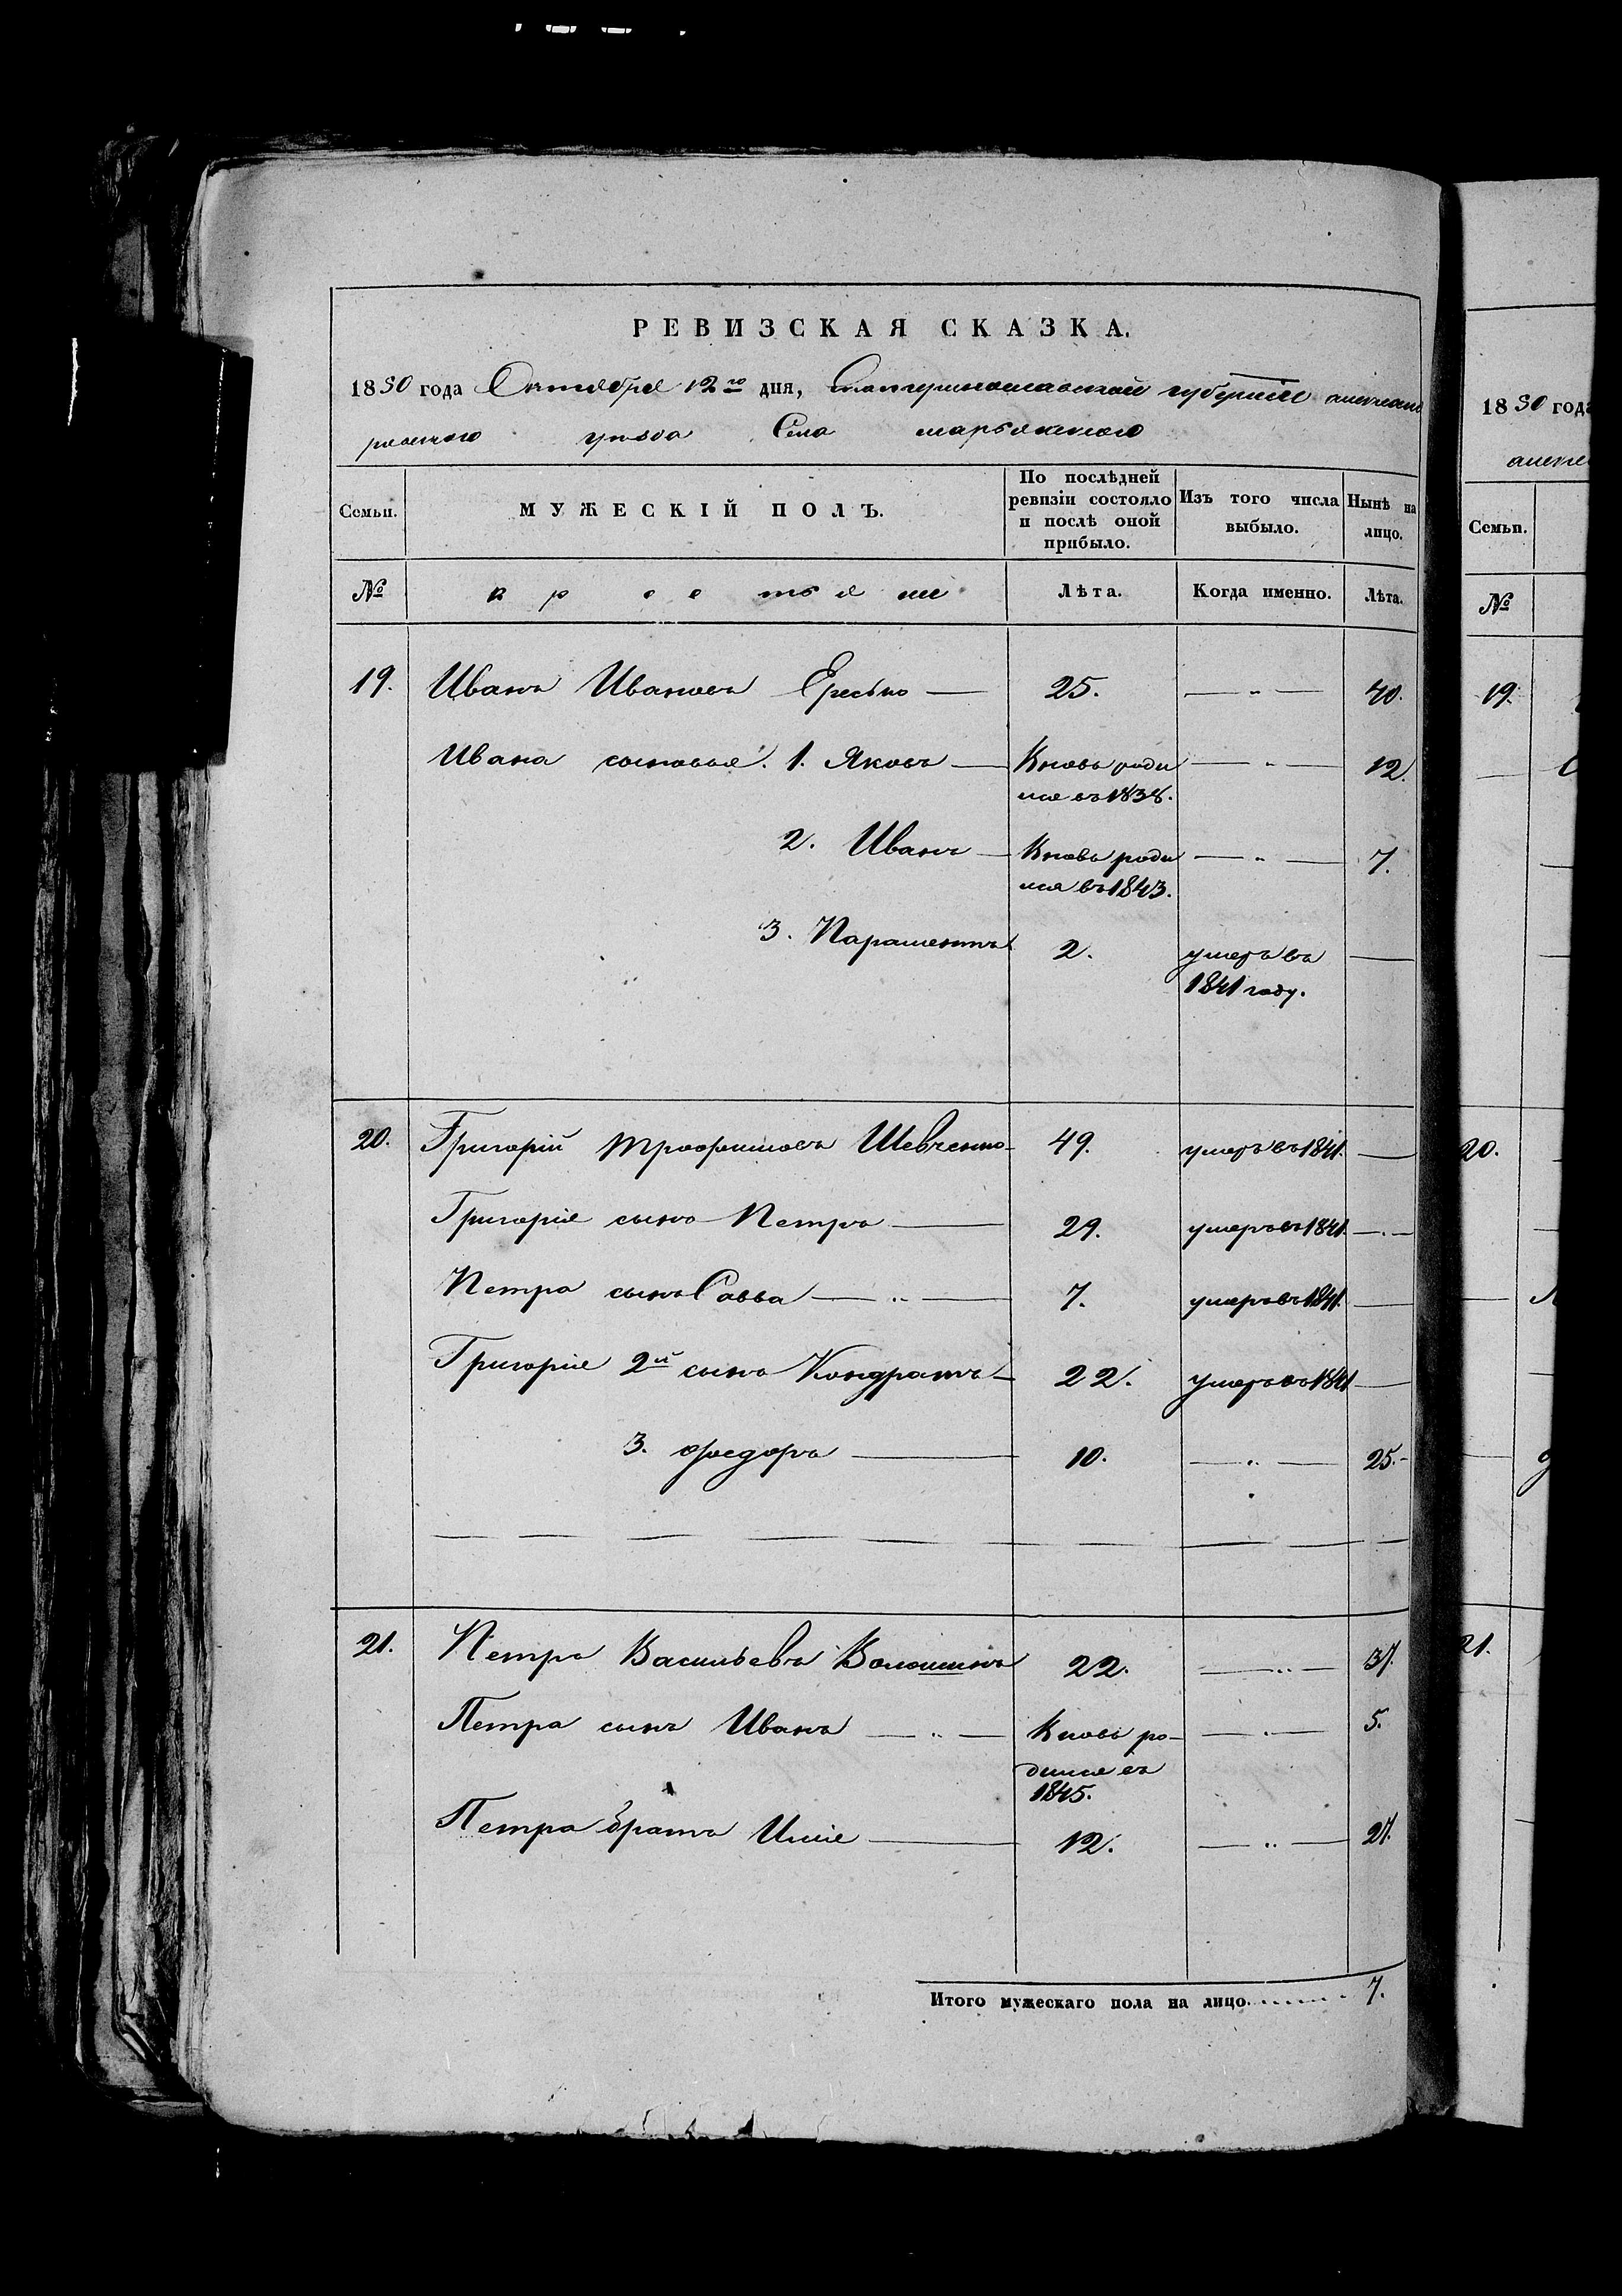 РЕВИЗСКАЯ СКАЗКА.
1850 года Октября 12го дня, Екатеринославской губерніи александ
ровского уѣзда Села марьянского
Семьи.
МУЖЕСКІЙ ПОЛЪ.
По послѣдней ревизіи состояло и послѣ оной прибыло.
Изъ того числа выбыло.
Нынѣ на лицо.
№ крестьяне Лѣта. Когда именно. Лѣта.
19. Иванъ Ивановъ Ересько — 25. — „ — 40.
Ивана сыновья. 1. Яковъ — Вновь роди — „ — 12.
лся въ 1838.
2. Иванъ — Вновь роди — „ — 7.
лся въ 1843.
3. Парамонтъ 2. умеръ въ —
1841 году.
20. Григорій Трофимовъ Шевченко 49. умеръ въ 1841. —
Григорія сынъ Петръ — 29. умеръ въ 1841. — „ —
Петра сынъ Савва — „ — 7. умеръ въ 1841. —
Григорія 2й сынъ Кондратъ — 22. умеръ въ 1841 —
3. Федоръ — 10. — „ — 25.
21. Петръ Васильевъ Волошинъ 22. — „ — 37.
Петра сынъ Иванъ — „ — Вновь ро- — „ — 5.
дился въ
1845.
Петра братъ Илія — 12. — „ — 27.
Итого мужескаго пола на лицо. 7.
1850 года
алекса
Семьи.
№
19.
20.
21.